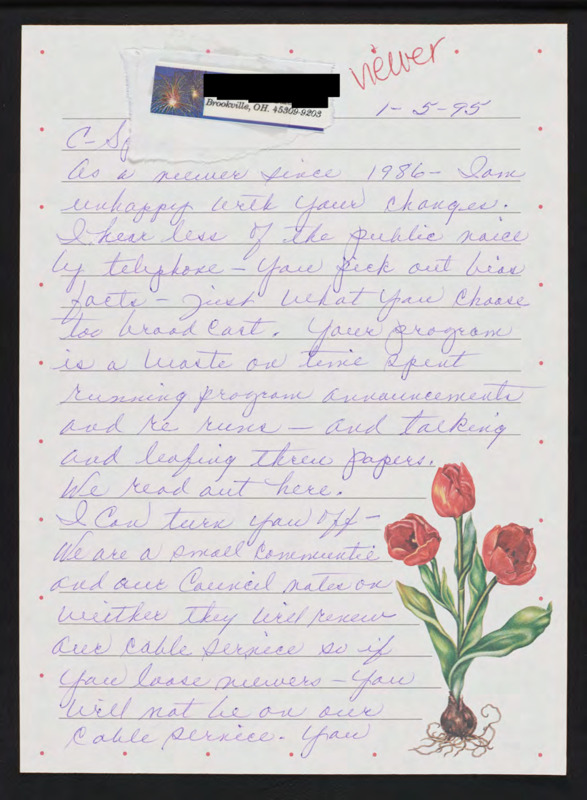 viewer
Brookville, OH. 45309-9203
1-5-95
C-Sp
As a viewer since 1986- I am
unhappy with your changes.
I hear less of the public voice
by telephone - you pick out bias
facts - just what you choose
too broad cast. Your program
is a waste on time spent
running program announcements
and re runs - and talking
and leafing threw papers.
We read out here.
I Can turn you off -
We are a small Communitie
and our Council votes on
weither they will renew
our cable service so if
you loose viewers - you
will not be on our
Cable service. You